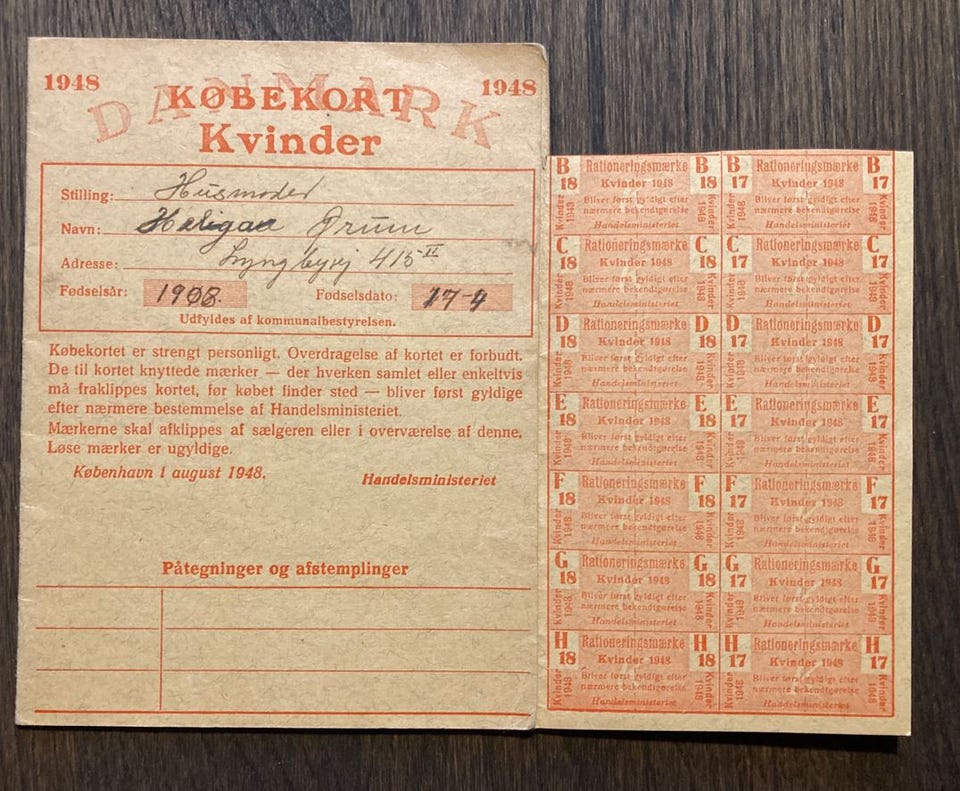 1948 KØBEKORT 1948
DANMARK
Kvinder
Stilling: Husmoder
Navn:
Adresse: Lyngbyvej 415 II
Fødselsår: 1908. Fødselsdato: 17-4
Udfyldes af kommunalbestyrelsen.
Købekortet er strengt personligt. Overdragelse af kortet er forbudt.
De til kortet knyttede mærker — der hverken samlet eller enkeltvis
må fraklippes kortet, før købet finder sted — bliver først gyldige
efter nærmere bestemmelse af Handelsministeriet.
Mærkerne skal afklippes af sælgeren eller i overværelse af denne.
Løse mærker er ugyldige.
København i august 1948. Handelsministeriet
Påtegninger og afstemplinger
B Rationeringsmærke B B Rationeringsmærke B
18 Kvinder 1948 18 17 Kvinder 1948 17
Kvinder 1948 Bliver først gyldigt efter Kvinder 1948 Kvinder 1948 Bliver først gyldigt efter Kvinder 1948
nærmere bekendtgørelse nærmere bekendtgørelse
Handelsministeriet Handelsministeriet
C Rationeringsmærke C C Rationeringsmærke C
18 Kvinder 1948 18 17 Kvinder 1948 17
Kvinder 1948 Bliver først gyldigt efter Kvinder 1948 Kvinder 1948 Bliver først gyldigt efter Kvinder 1948
nærmere bekendtgørelse nærmere bekendtgørelse
Handelsministeriet Handelsministeriet
D Rationeringsmærke D D Rationeringsmærke D
18 Kvinder 1948 18 17 Kvinder 1948 17
Kvinder 1948 Bliver først gyldigt efter Kvinder 1948 Kvinder 1948 Bliver først gyldigt efter Kvinder 1948
nærmere bekendtgørelse nærmere bekendtgørelse
Handelsministeriet Handelsministeriet
E Rationeringsmærke E E Rationeringsmærke E
18 Kvinder 1948 18 17 Kvinder 1948 17
Kvinder 1948 Bliver først gyldigt efter Kvinder 1948 Kvinder 1948 Bliver først gyldigt efter Kvinder 1948
nærmere bekendtgørelse nærmere bekendtgørelse
Handelsministeriet Handelsministeriet
F Rationeringsmærke F F Rationeringsmærke F
18 Kvinder 1948 18 17 Kvinder 1948 17
Kvinder 1948 Bliver først gyldigt efter Kvinder 1948 Kvinder 1948 Bliver først gyldigt efter Kvinder 1948
nærmere bekendtgørelse nærmere bekendtgørelse
Handelsministeriet Handelsministeriet
G Rationeringsmærke G G Rationeringsmærke G
18 Kvinder 1948 18 17 Kvinder 1948 17
Kvinder 1948 Bliver først gyldigt efter Kvinder 1948 Kvinder 1948 Bliver først gyldigt efter Kvinder 1948
nærmere bekendtgørelse nærmere bekendtgørelse
Handelsministeriet Handelsministeriet
H Rationeringsmærke H H Rationeringsmærke H
18 Kvinder 1948 18 17 Kvinder 1948 17
Kvinder 1948 Bliver først gyldigt efter Kvinder 1948 Kvinder 1948 Bliver først gyldigt efter Kvinder 1948
nærmere bekendtgørelse nærmere bekendtgørelse
Handelsministeriet Handelsministeriet